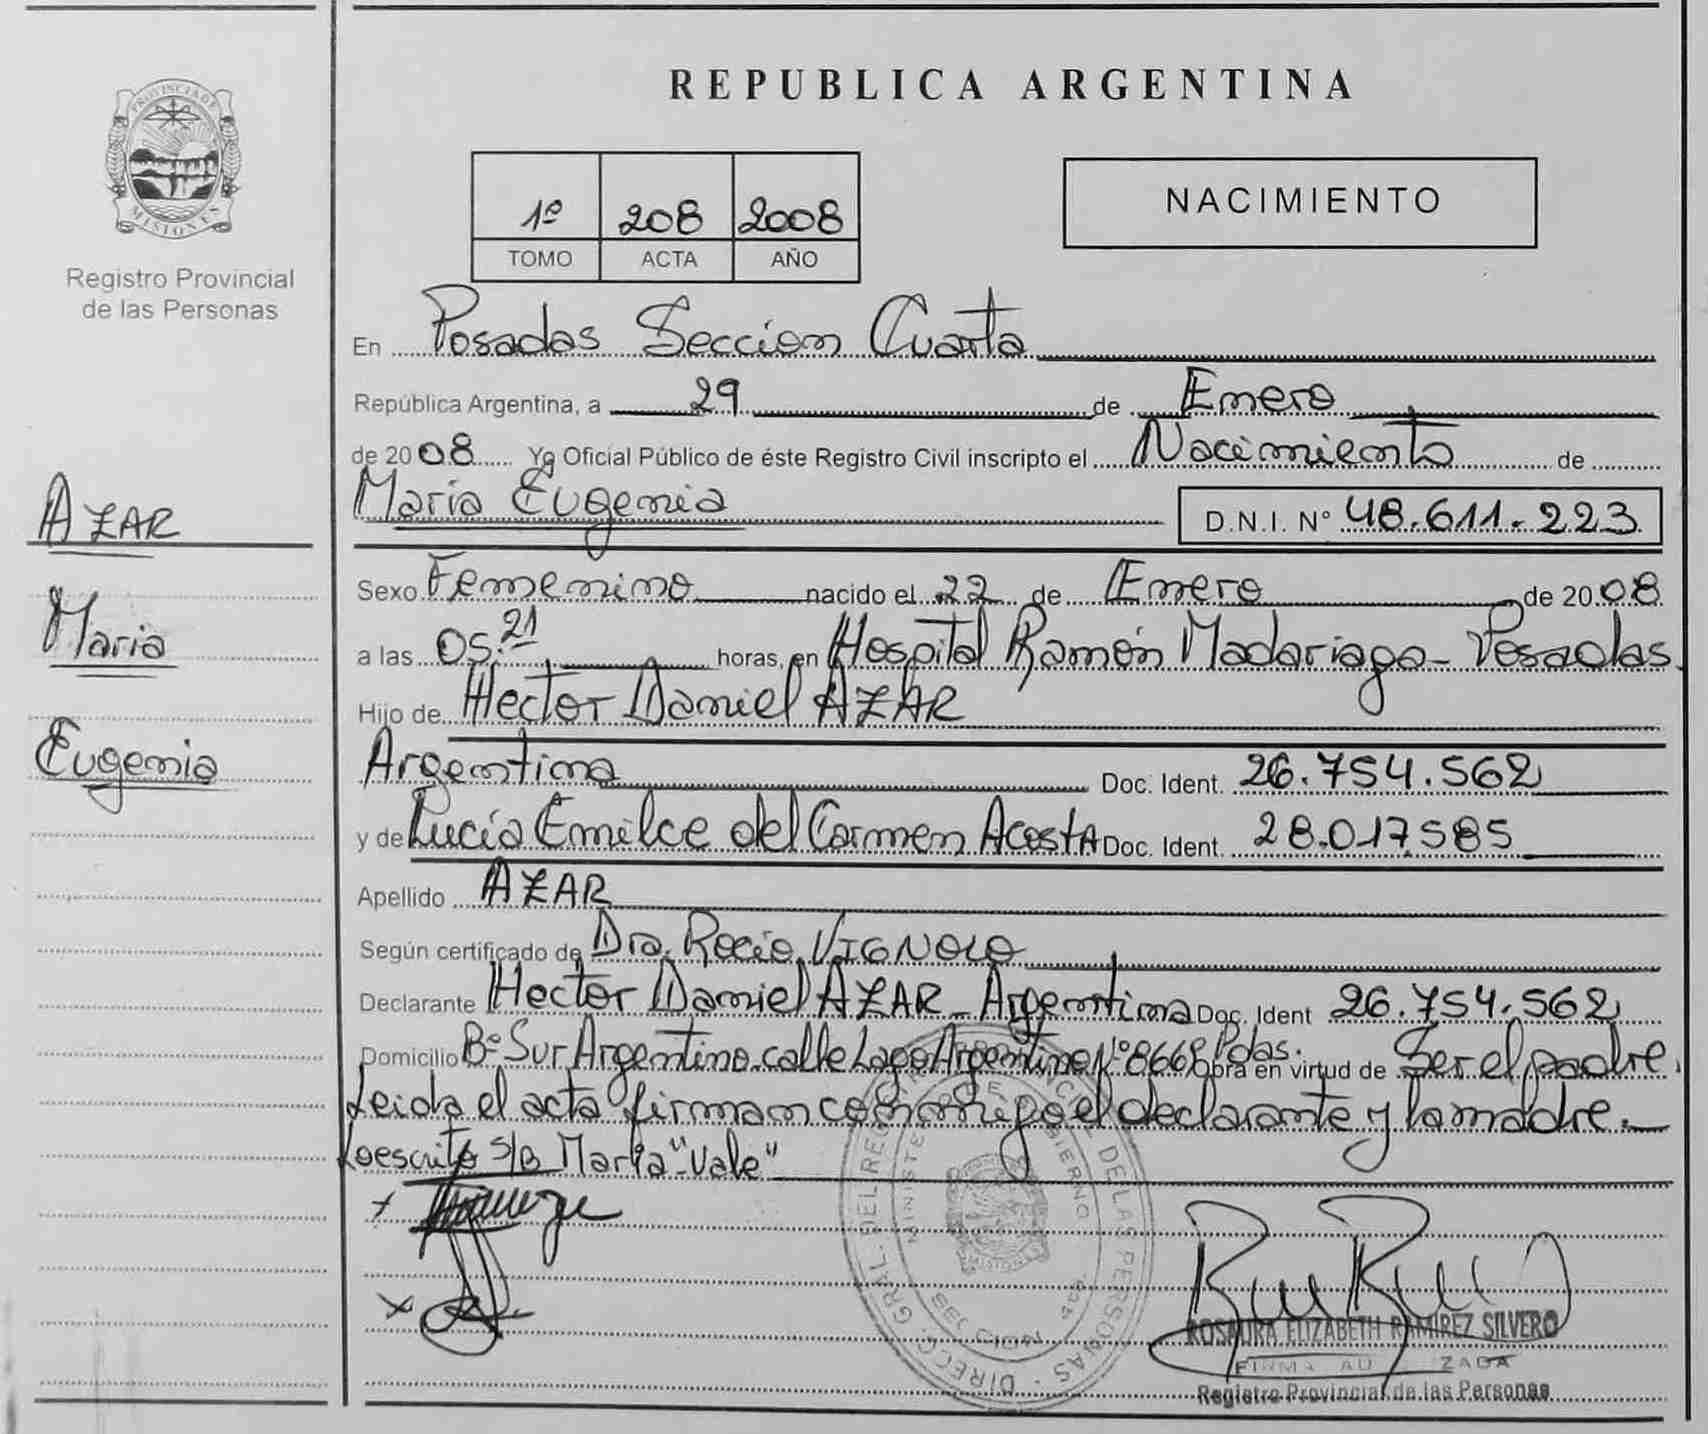 PROVINCIA DE
MISIONES
Registro Provincial
de las Personas
AZAR
Maria
Eugenia
REPUBLICA ARGENTINA
1º 208 2008
TOMO ACTA AÑO
NACIMIENTO
En Posadas Seccion Cuarta
República Argentina, a 29 de Enero
de 2008 Yo Oficial Público de éste Registro Civil inscripto el Nacimiento de
Maria Eugenia D.N.I. Nº 48.611.223
Sexo Femenino nacido el 22 de Enero de 2008
a las 05.21 horas, en Hospital Ramón Madariaga - Posadas.
Hijo de Hector Daniel AZAR
Argentina Doc. Ident. 26.754.562
y de Lucía Emilce del Carmen Acosta Doc. Ident. 28.017.585
Apellido AZAR
Según certificado de Dra. Rocío VIGNOLO
Declarante Hector Daniel AZAR - Argentina Doc. Ident 26.754.562
Domicilio Bº Sur Argentino - calle Lago Argentino Nº 8668 Pdas. obra en virtud de Ser el padre.
Leida el acta firman conmigo el declarante y la madre.-
Lo escrito s/B Maria "Vale"
ROSAURA ELIZABETH RAMIREZ SILVERO
Registro Provincial de las Personas